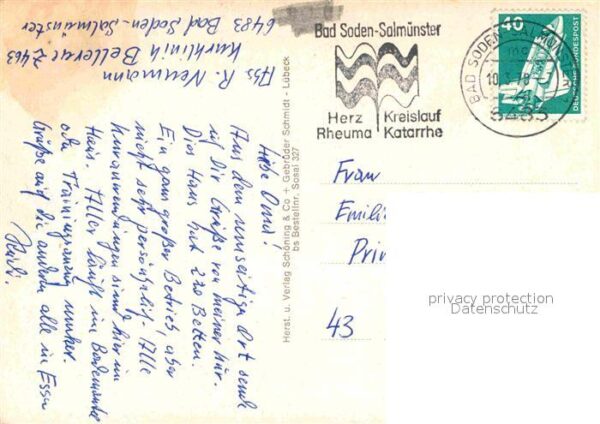 Abs. R. Neumann
Kurklinik Bellevue Z 463
6483 Bad Soden-Salmünster
Liebe Omi!
Aus dem umseitigen Ort sende
ich Dir Grüße von meiner Kur.
Dies Haus hat 220 Betten.
Ein ganz großer Betrieb, aber
nicht sehr persönlich. Alle
Kuranwendungen sind hier im
Haus. Alles läuft im Bademantel
oder Trainingsanzug umher.
Grüße auf die andern alle in Essen
Herst. u. Verlag Schöning & Co + Gebrüder Schmidt - Lübeck
bs Bestellnr. Sosal 327
Bad Soden-Salmünster
Herz Kreislauf
Rheuma Katarrhe
BAD SODEN-SALMÜNSTER
6483
40
DEUTSCHE BUNDESPOST
Frau
Emilie
Prin
43
privacy protection
Datenschutz